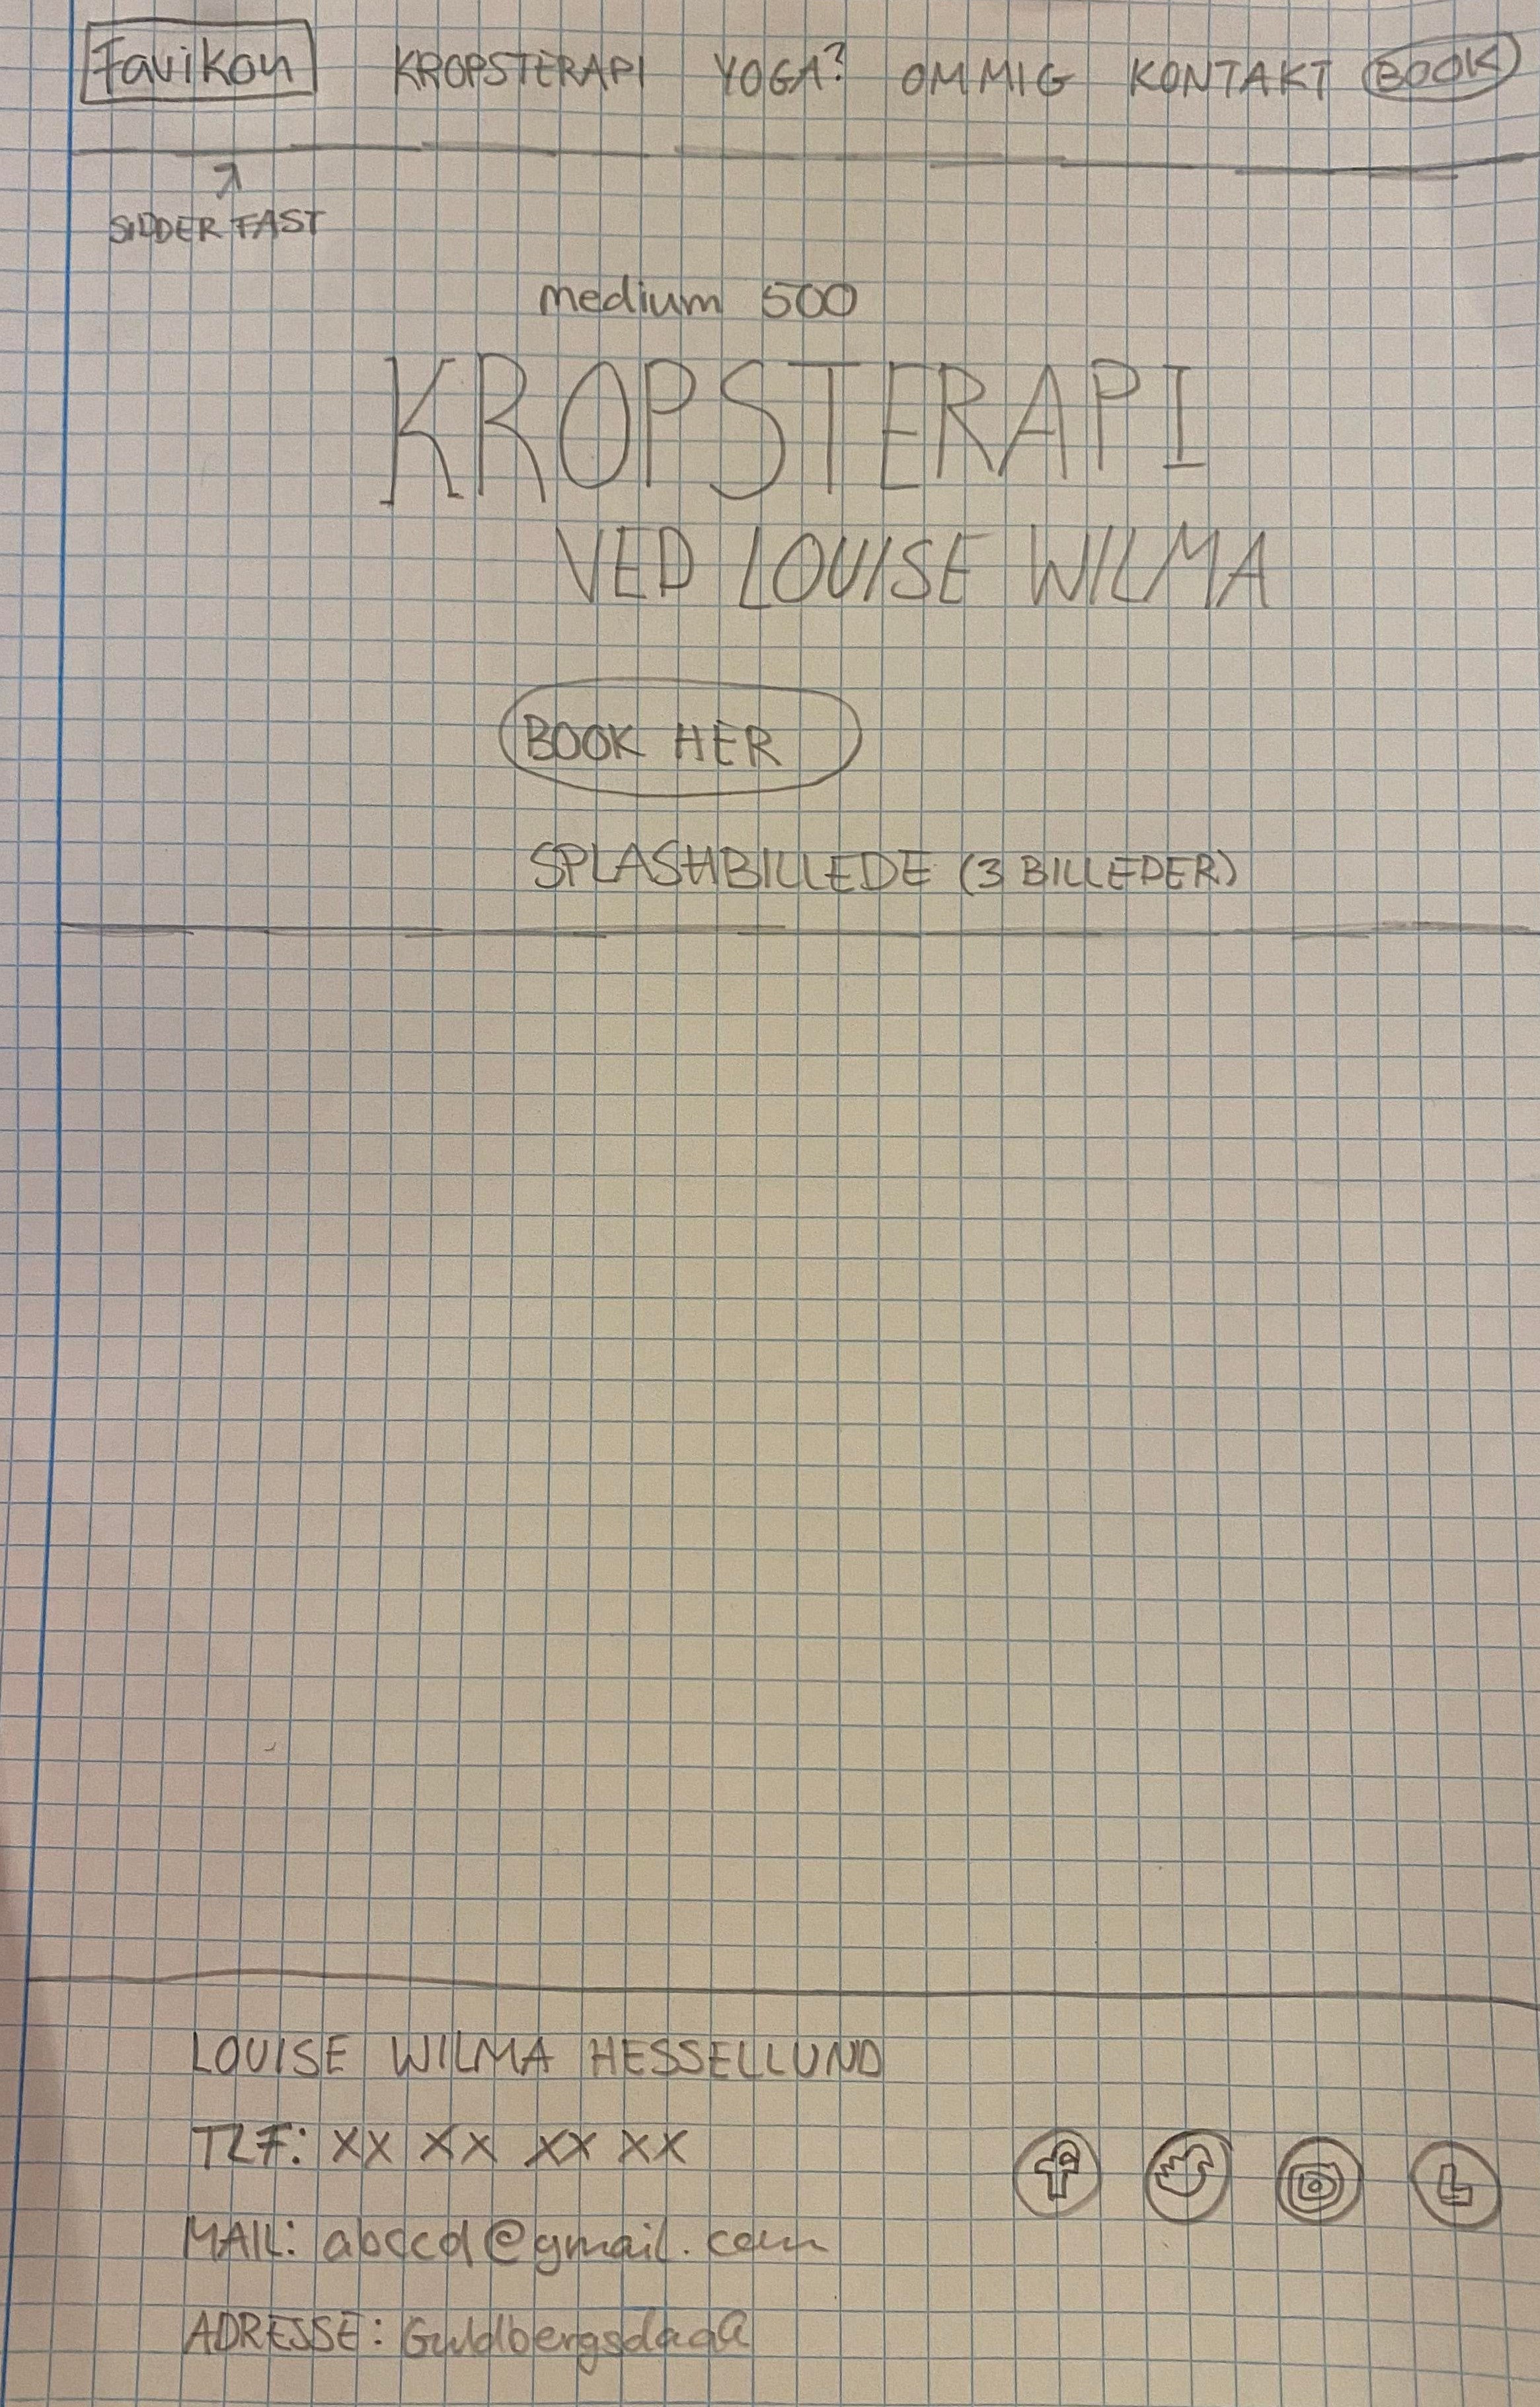 Favikon KROPSTERAPI YOGA? OM MIG KONTAKT BOOK
SIDDER FAST
medium 500
KROPSTERAPI
VED LOUISE WILMA
BOOK HER
SPLASHBILLEDE (3 BILLEDER)
LOUISE WILMA HESSELLUND
TLF: XX XX XX XX
MAIL: abccd@gmail.com
ADRESSE: